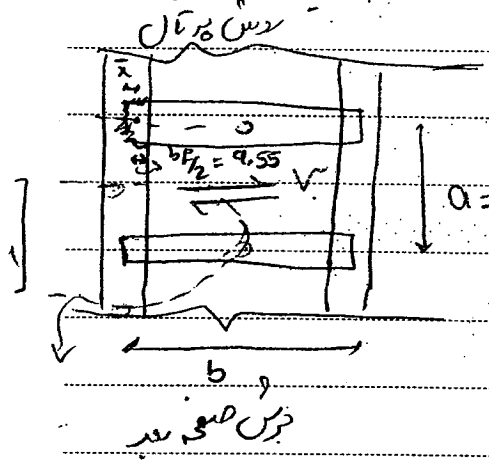 روش پرتال
x̄
bp/2 = 9.55
V
a =
b
برش صفحه بعد